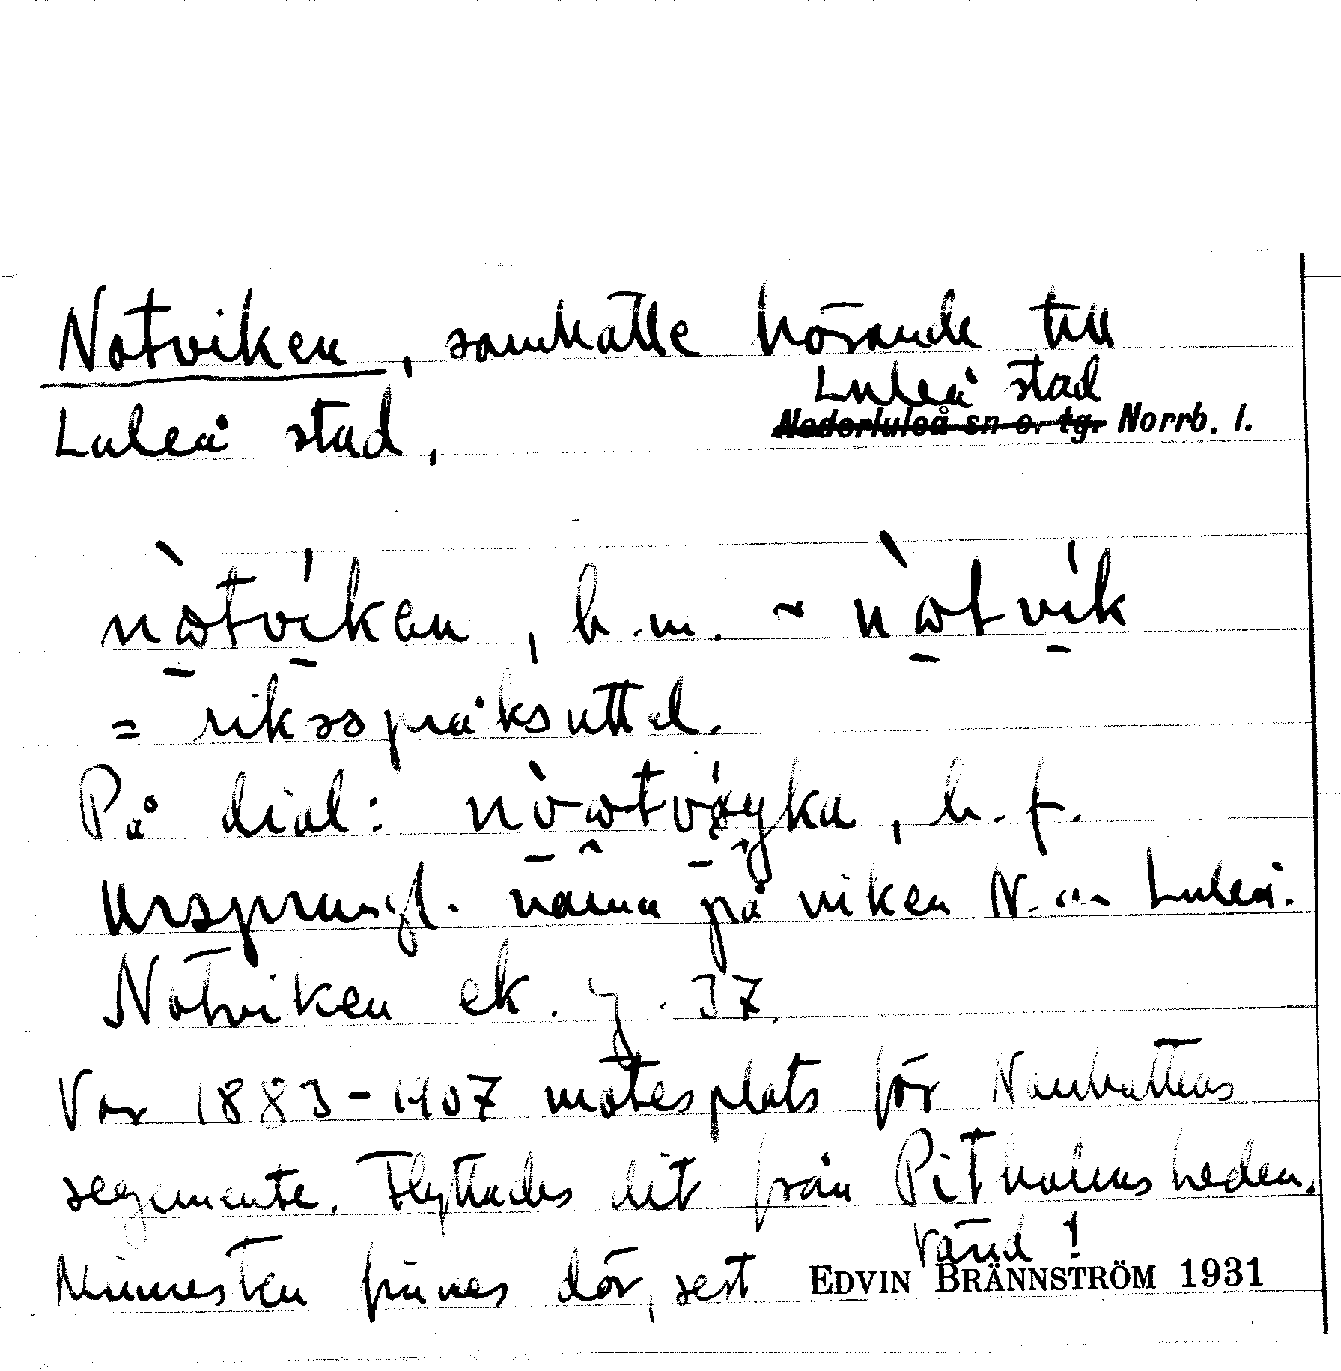 Notviken, samhälle hörande till
Luleå stad
Luleå stad, Nederluleå sn o. tg. Norrb. l.
nò̠tví̠ken, b.m. ~ nò̠tví̠k
= riksspråksuttal.
På dial: b. f.
Ursprungl. namn på viken N. om Luleå.
Notviken ek. 37.
Var 1883-1907 mötesplats för Norrbottens
regemente. Flyttades dit från Pitholmsheden.
Vänd!
Minnesten finnes där, rest EDVIN BRÄNNSTRÖM 1931